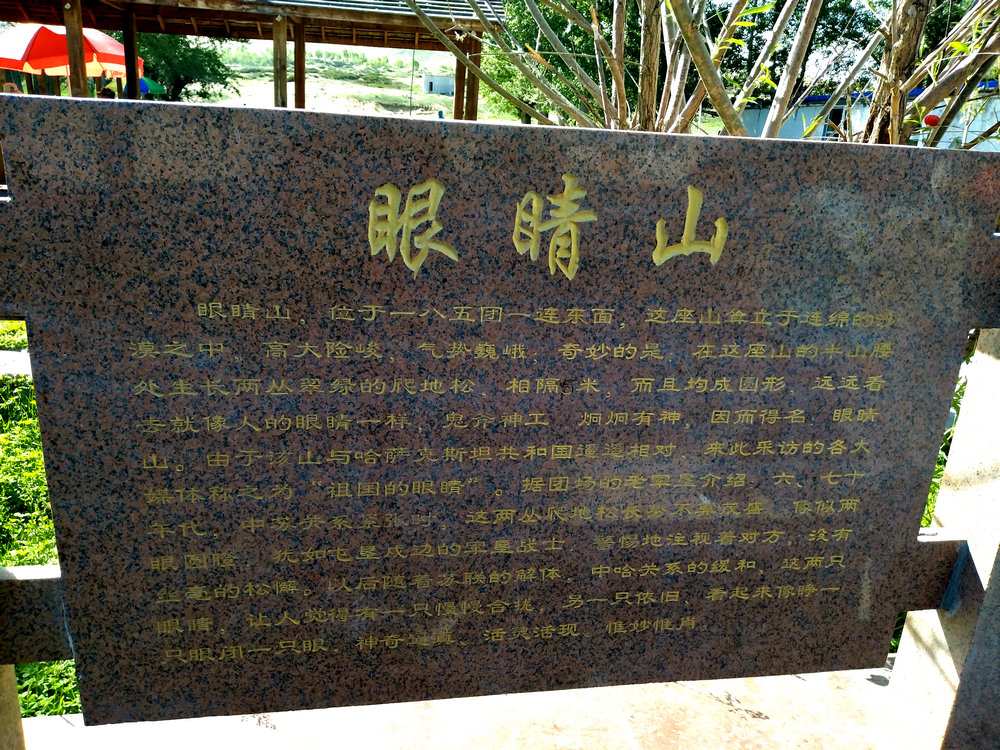 眼睛山
眼睛山，位于一八五团一连东面，这座山耸立于连绵的沙
漠之中，高大险峻，气势巍峨，奇妙的是，在这座山的半山腰
处生长两丛翠绿的爬地松，相隔百米，而且均成圆形，远远看
去就像人的眼睛一样，鬼斧神工，炯炯有神，因而得名，眼睛
山。由于该山与哈萨克斯坦共和国遥遥相对，来此采访的各大
媒体称之为“祖国的眼睛”。据团场的老军垦介绍，六、七十
年代，中苏关系紧张时，这两丛爬地松长势不集茂盛，像似两
眼圆睁，犹如屯垦戍边的军垦战士，警惕地注视着对方，没有
丝毫的松懈。以后随着苏联的解体，中哈关系的缓和，这两只
眼睛，让人觉得有一只慢慢合拢，另一只依旧，看起来像睁一
只眼闭一只眼，神奇逼真，活灵活现，惟妙惟肖。